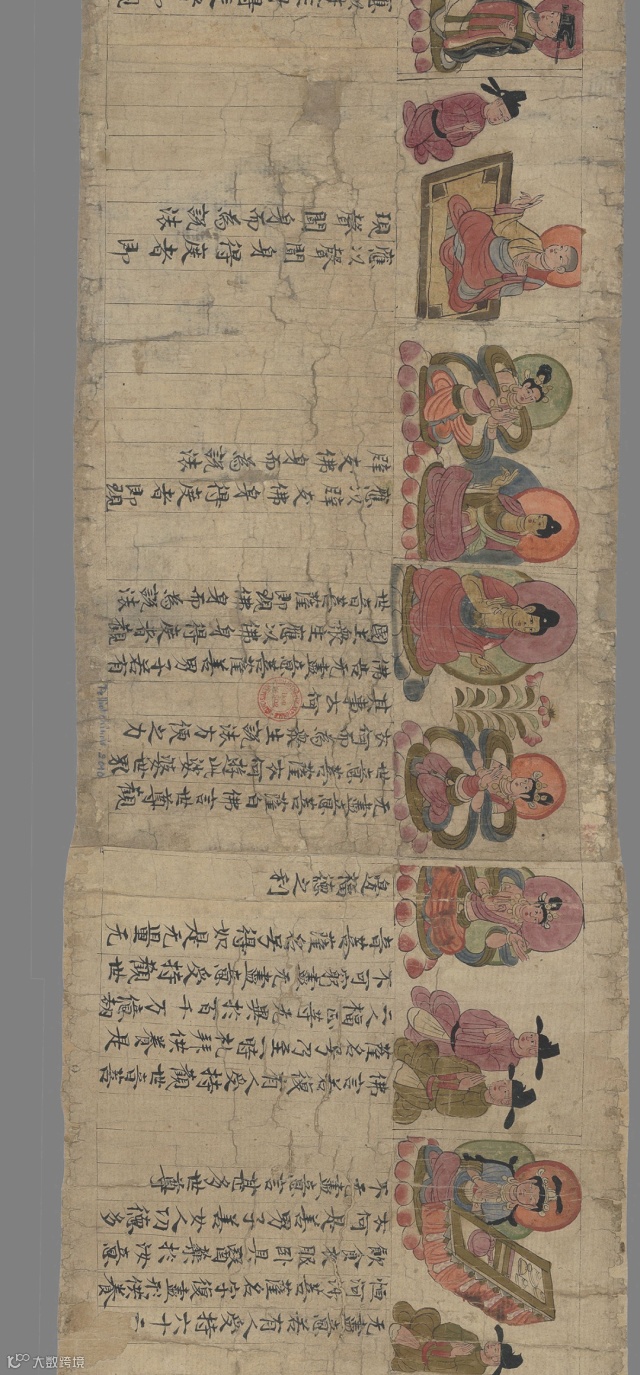 无盡意若有人受持六十二
恒河沙菩薩名字復盡形供養
飲食衣服卧具醫藥於汝意
云何是善男子善女人功德多
不无盡意言甚多世尊
佛言若復有人受持觀世音菩
薩名号乃至一時礼拜供養是
二人福正等无異於百千万億劫
不可窮盡无盡意受持觀世
音菩薩名号得如是无量无
邊福德之利
无盡意菩薩白佛言世尊觀
世音菩薩云何遊此娑婆世界
云何而為衆生說法方便之力
其事云何
佛告无盡意菩薩善男子若有
國土衆生應以佛身得度者觀
世音菩薩即現佛身而為說法
應以辟支佛身得度者即現
辟支佛身而為說法
應以聲聞身得度者即
現聲聞身而為說法
大数跨境